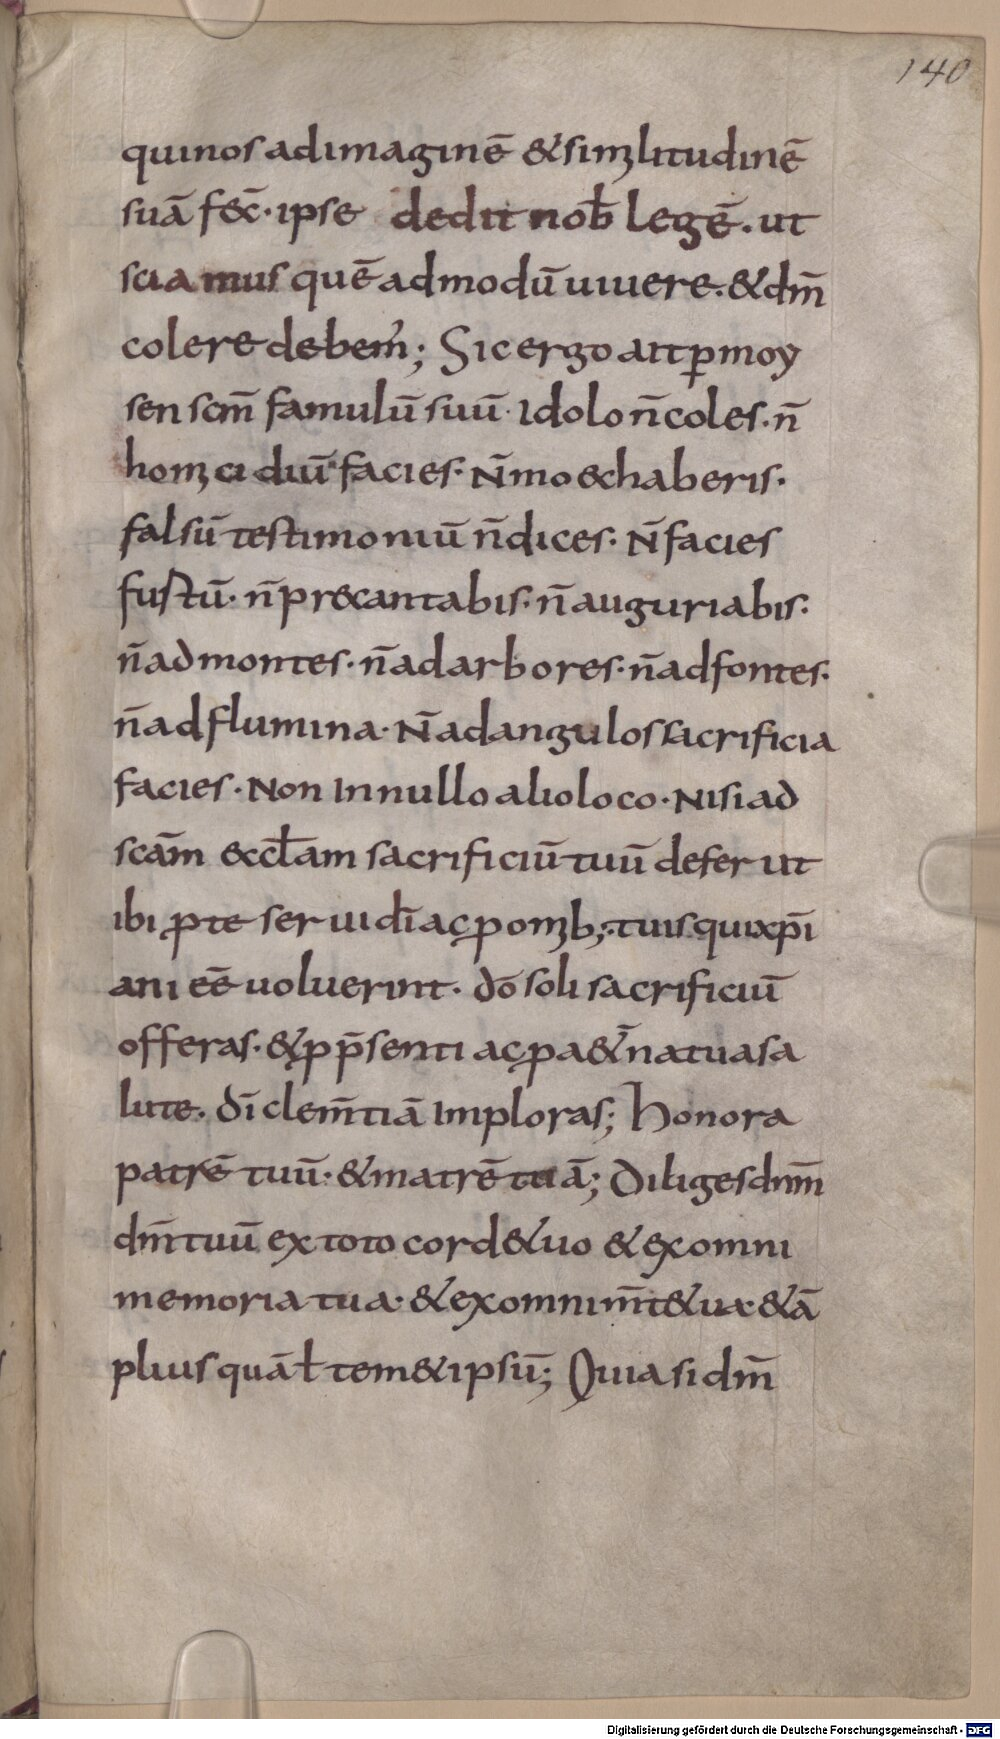 140
qui nos ad imaginē & similitudinē
suā fec̄. ipse dedit nob̄ legē. ut
sciamus quē admodū uiuere. & dm̄
colere debem'; Sic ergo ait ꝑ moy
sen scm̄ famulū suū. Idolo n̄ coles. n̄
homicidiū facies. N̄ moechaberis.
falsū testimoniū n̄ dices. N̄ facies
fustū. n̄ precantabis. n̄ auguriabis.
n̄ ad montes. n̄ ad arbores. n̄ ad fontes.
n̄ ad flumina. N̄ ad angulos sacrificia
facies. Non In nullo alio loco. Nisi ad
scām eccl̄am sacrificiū tuū defer ut
ibi ꝓ te serui dī ac ꝓ omib; tuis qui xp̄i
ani eē uoluerint. dō soli sacrificiū
offeras. & ꝓ p̄senti ac ꝓ a&̄na tua sa
lute. dī clem̄tiā Imploras; Honora
patrē tuū. & matrē tuā; Diliges dnm̄
dm̄ tuū ex toto corde tuo & ex omni
memoria tua. & ex omni m̄te tua. & ā
plius quā ł tem& ipsū; Quia si dm̄
Digitalisierung gefördert durch die Deutsche Forschungsgemeinschaft - DFG